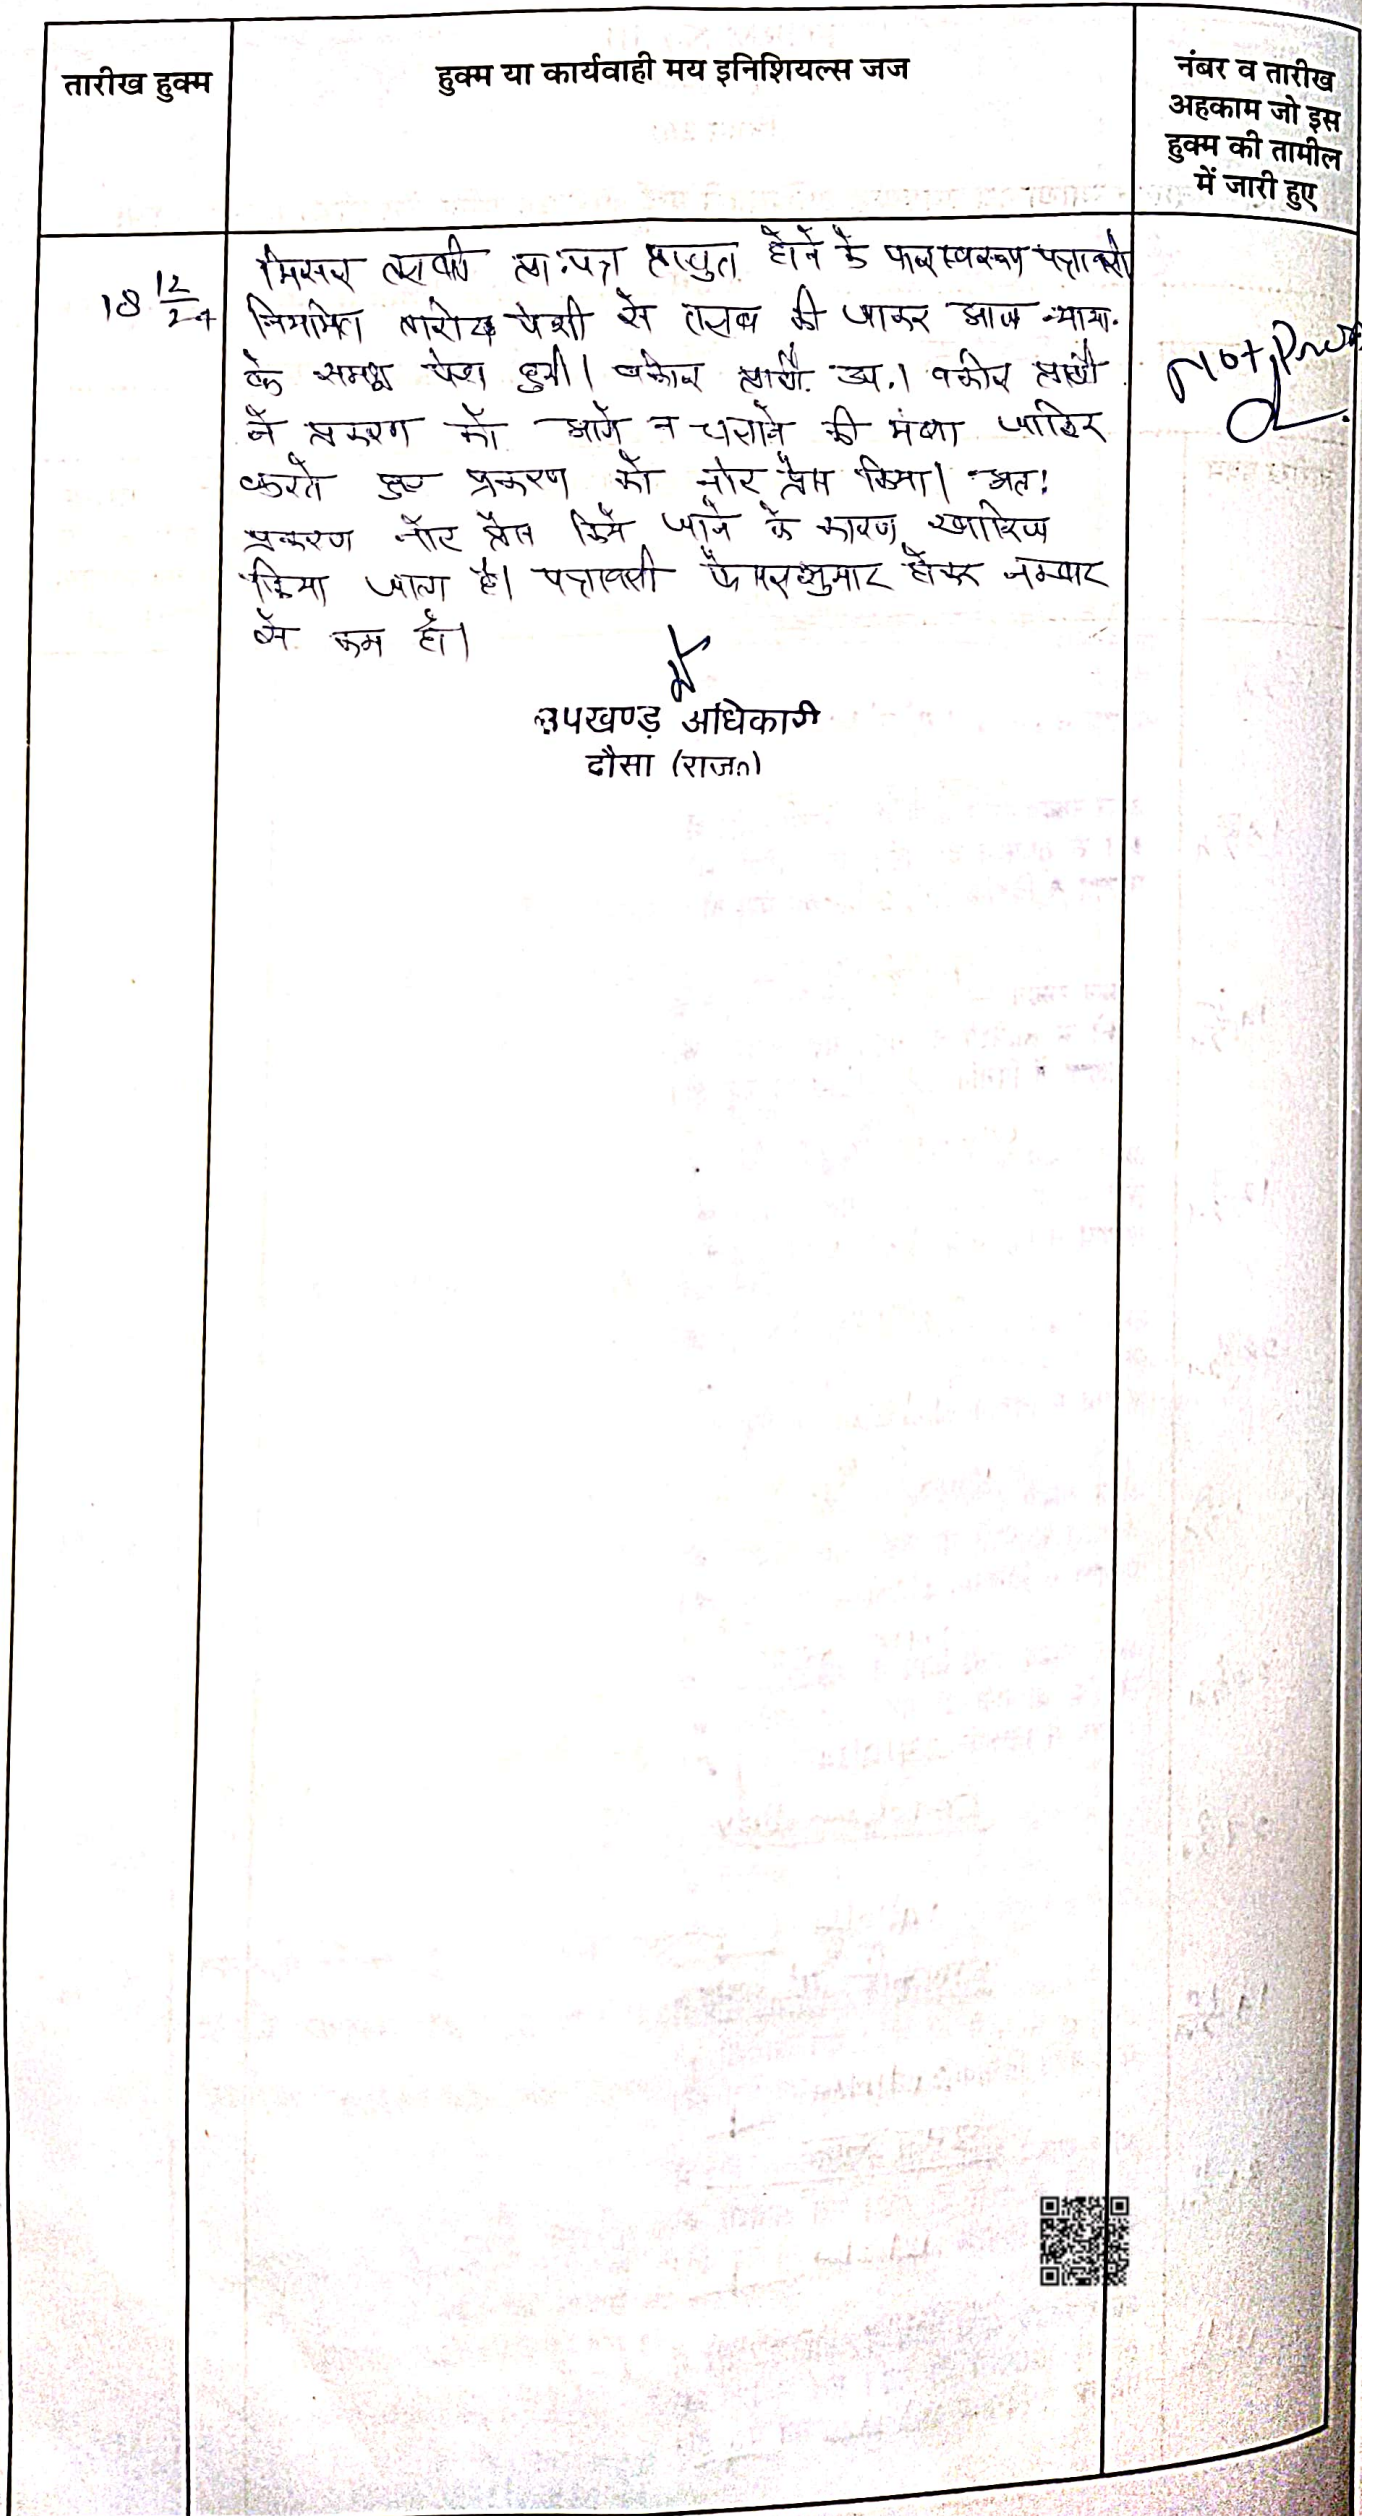 तारीख हुक्म
हुक्म या कार्यवाही मय इनिशियल्स जज
नंबर व तारीख
अहकाम जो इस
हुक्म की तामील
में जारी हुए
18 12/24
मिसल तलबी प्रा.पत्र प्रस्तुत होने के फलस्वरूप पत्रावली
नियमित तारीख पेशी से तलब की जाकर आज न्याया.
के समक्ष पेश हुयी। वकील प्रार्थी उप.। वकील प्रार्थी
ने प्रकरण को आगे न चलाने की मंशा जाहिर
करते हुए प्रकरण को नोट प्रैस किया। अतः
प्रकरण नोट प्रैस किये जाने के कारण खारिज
किया जाता है। पत्रावली फैसलशुमार होकर नम्बर
से कम हो।
उपखण्ड अधिकारी
दौसा (राज०)
Not Press